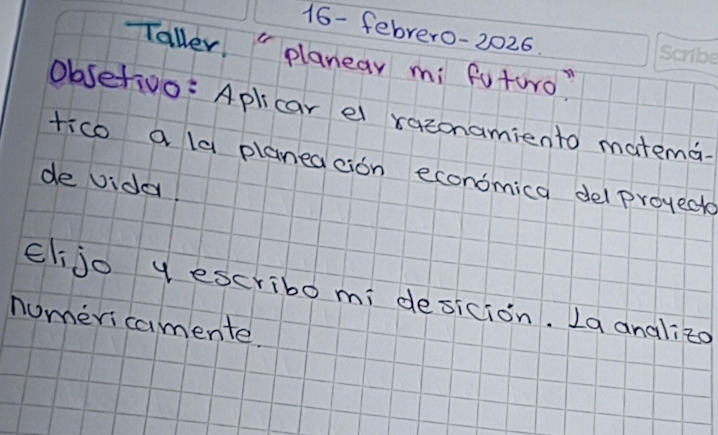 16- febrero-2026.
Scribe
Taller. "planear mi futuro."
Obsetivo: Aplicar el razonamiento matemá-
tico a la planeación económica del proyecto
de vida.
Elijo y escribo mi desición. La analizo
numéricamente.